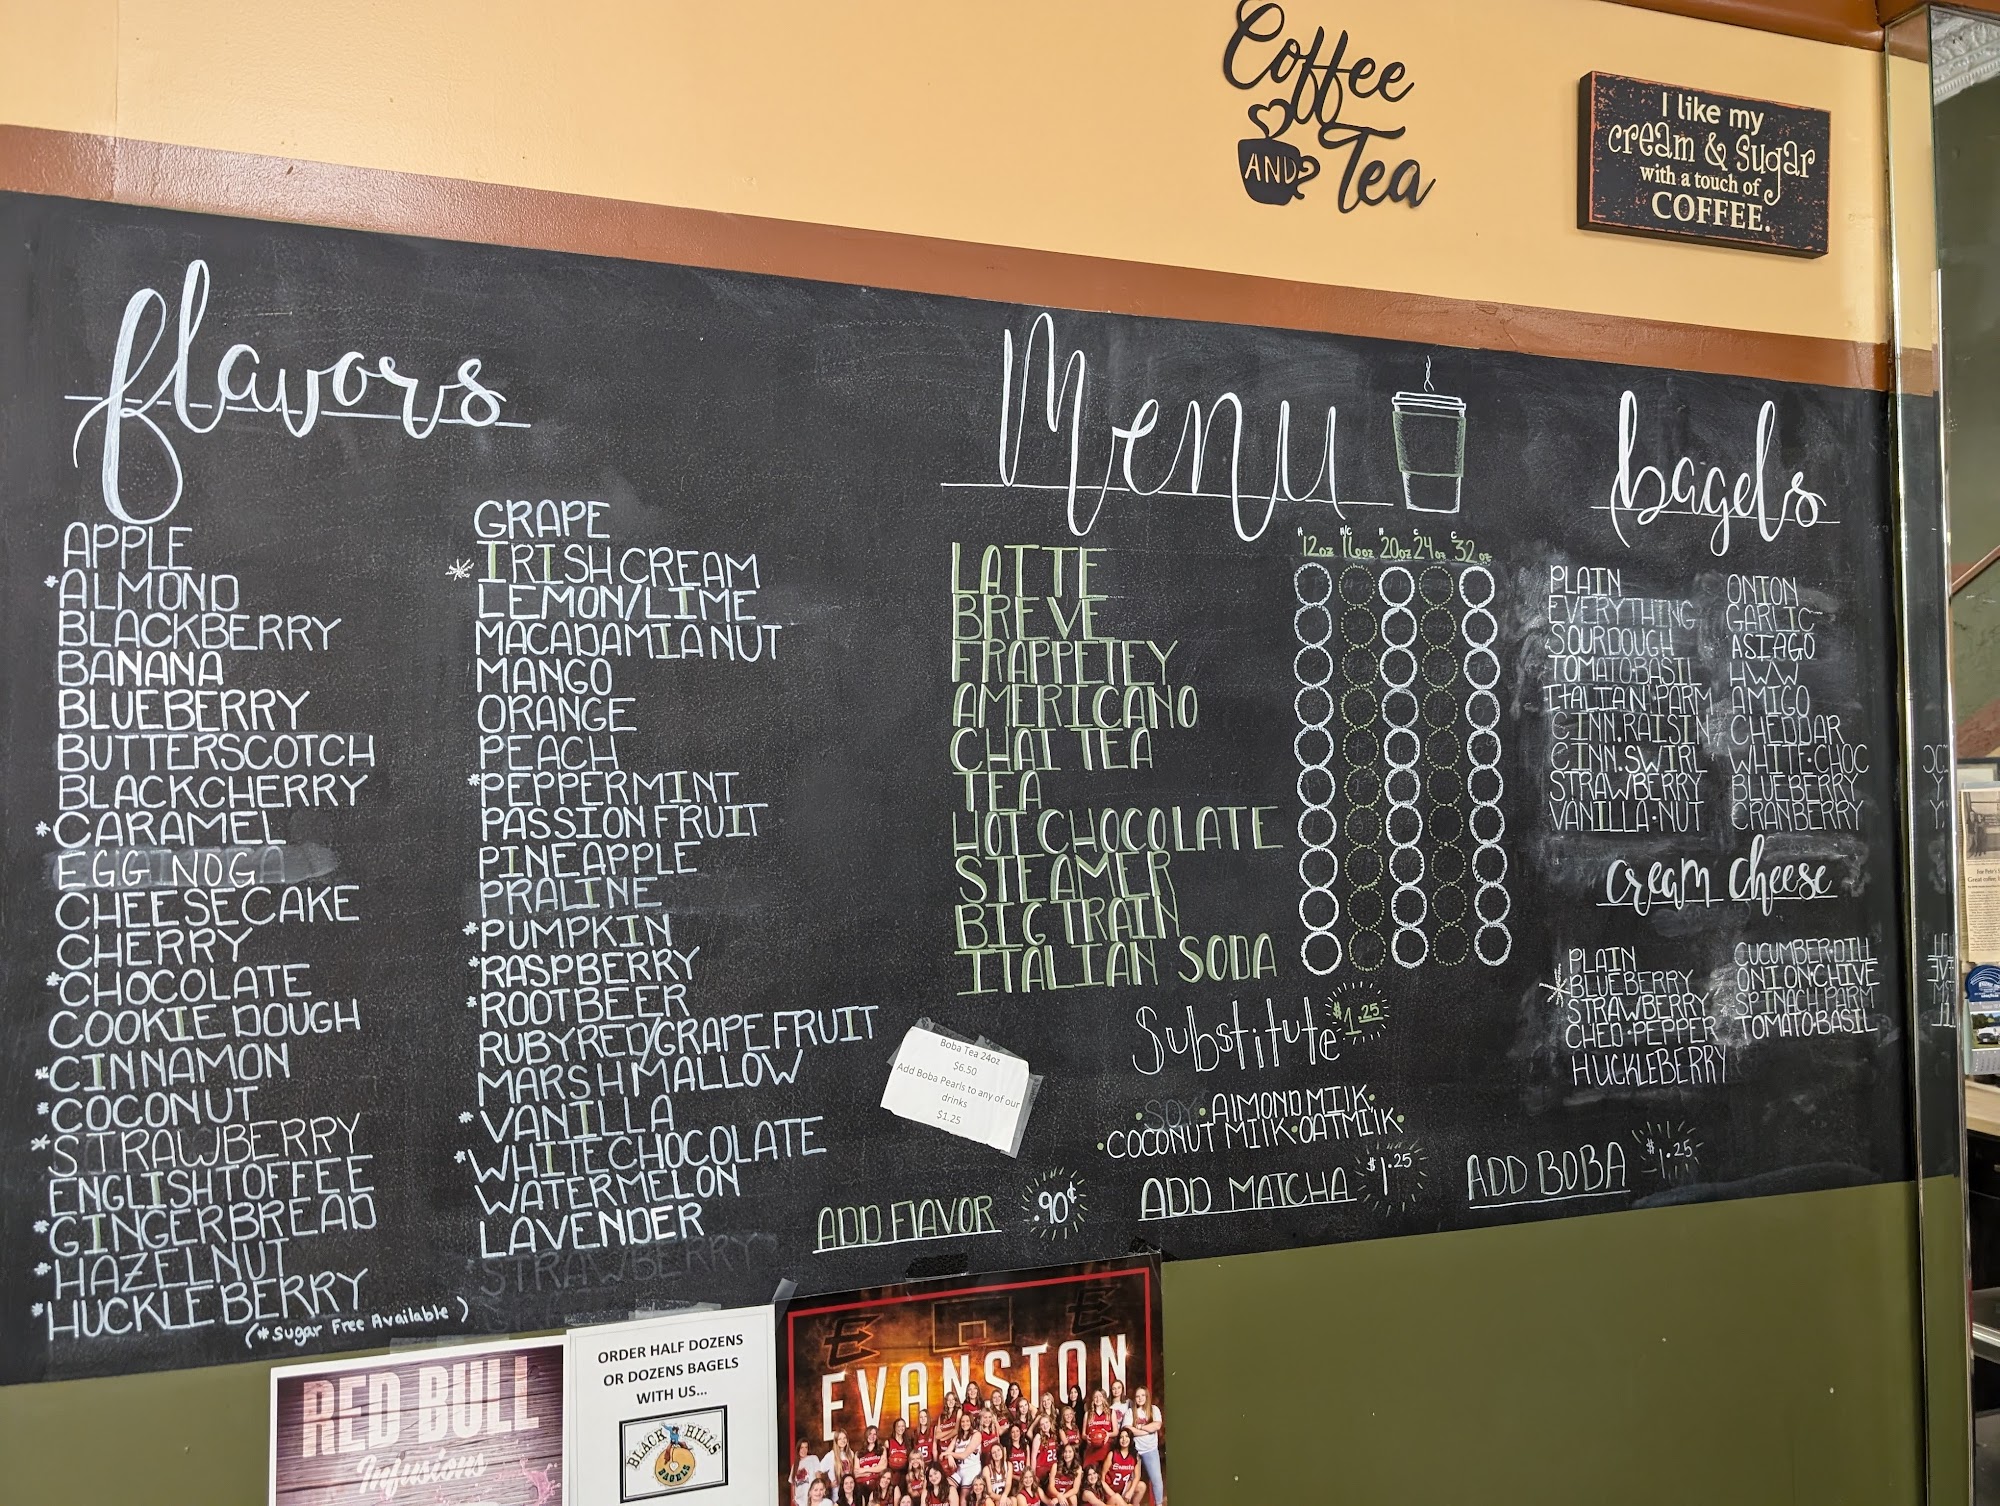 Coffee
AND Tea
I like my
cream & sugar
with a touch of
COFFEE.
flavors
APPLE
*ALMOND
BLACKBERRY
BANANA
BLUEBERRY
BUTTERSCOTCH
BLACKCHERRY
*CARAMEL
EGG NOG
CHEESECAKE
CHERRY
*CHOCOLATE
COOKIE DOUGH
*CINNAMON
*COCONUT
*STRAWBERRY
ENGLISH TOFFEE
*GINGERBREAD
*HAZELNUT
*HUCKLEBERRY
(*Sugar Free Available)
GRAPE
*IRISH CREAM
LEMON/LIME
MACADAMIA NUT
MANGO
ORANGE
PEACH
*PEPPERMINT
PASSION FRUIT
PINEAPPLE
PRALINE
*PUMPKIN
*RASPBERRY
*ROOTBEER
RUBYRED/GRAPEFRUIT
MARSHMALLOW
*VANILLA
*WHITE CHOCOLATE
WATERMELON
LAVENDER
STRAWBERRY
Menu
H 12oz H/C 16oz H 20oz C 24oz C 32oz
LATTE
BREVE
FRAPPETEY
AMERICANO
CHAI TEA
TEA
HOT CHOCOLATE
STEAMER
BIG TRAIN
ITALIAN SODA
Substitute $1.25
SOY • AlMOND MIlK •
• COCONUT MILK • OATMILK •
Boba Tea 24oz
$6.50
Add Boba Pearls to any of our
drinks
$1.25
ADD FlAVOR .90¢
ADD MATCHA $1.25
ADD BOBA $1.25
bagels
PLAIN
EVERYTHING
SOURDOUGH
TOMATO BASIL
ITALIAN·PARM
CINN.RAISIN
CINN.SWIRL
STRAWBERRY
VANILLA·NUT
ONION
GARLIC
ASIAGO
HWW
AMIGO
CHEDDAR
WHITE·CHOC
BLUEBERRY
CRANBERRY
cream cheese
PLAIN
*BLUEBERRY
STRAWBERRY
CHED·PEPPER
HUCKLEBERRY
CUCUMBER·DILL
ONION·CHIVE
SPINACH PARM
TOMATO·BASIL
RED BULL
Infusions
ORDER HALF DOZENS
OR DOZENS BAGELS
WITH US...
BLACK HILLS
BAGELS
EVANSTON